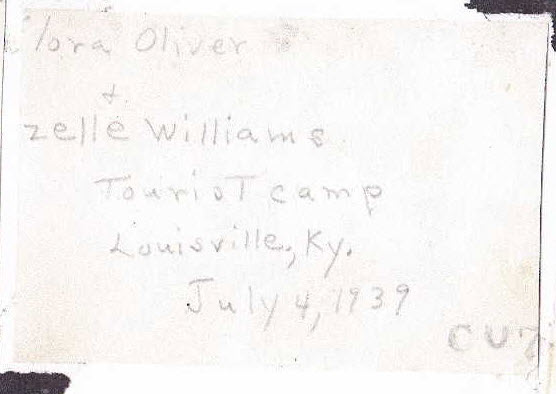 lora Oliver
&
zelle Williams
Tourist camp
Louisville, Ky.
July 4, 1939